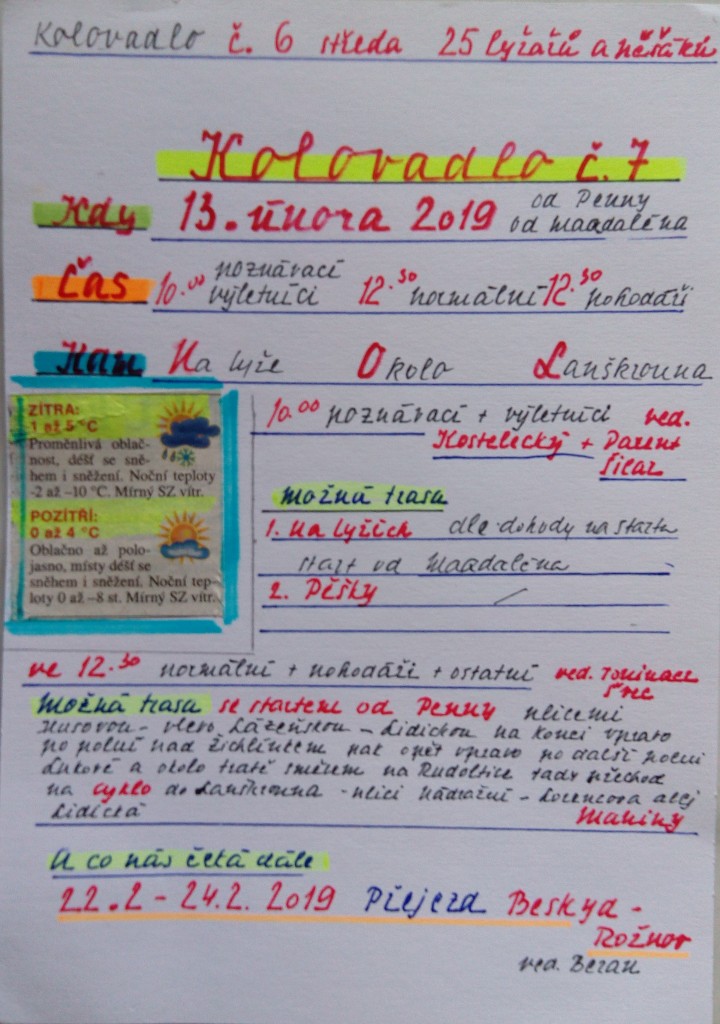 Kolovadlo č. 6 středa 25 lyžařů a pěšáků
Kolovadlo č. 7
Kdy 13. února 2019 od Penny
od Magdaléna
Čas 10.00 poznávací výletníci 12.30 normální 12.30 pohodáři
Kam Na lyže Okolo Lanškrouna
ZÍTRA:
1 až 5 °C
Proměnlivá oblač-
nost, déšť se sně-
hem i sněžení. Noční teploty
-2 až –10 °C. Mírný SZ vítr.
POZÍTŘÍ:
0 až 4 °C
Oblačno až polo-
jasno, místy déšť se
sněhem i sněžení. Noční tep-
loty 0 až –8 st. Mírný SZ vítr.
10.00 poznávací + výletníci ved.
Kostelecký + Parent
Možná trasa
1. Na lyžích dle dohody na startu
start od Magdaléna
2. Pěšky
ve 12.30 normální + pohodáři + ostatní ved.
Možná trasa se startem od Penny ulicemi
Husovou - vlevo Lázeňskou - Lidickou na konci vpravo
po polní nad Žichlínkem pak opět vpravo po další polní
Lukové a okolo tratě směrem na Rudoltice tady přechod
na cyklo do Lanškrouna - ulicí Nádražní - Lorencova alej
Lidická Mariny
A co nás čeká dále
22.2 - 24.2. 2019 Přejezd Beskyd -
Rožnov
ved. Beran